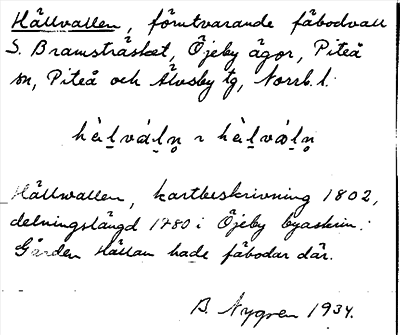 Hällvallen, förutvarande fäbodvall
S. Bramsträsket, Öjeby ägor, Piteå
sn, Piteå och Älvsby tg, Norrb. l.
hälvál̥n̥ ~ hälvål̥n̥
Hällwallen, kartbeskrivning 1802,
delningslängd 1780 i Öjeby byaskrin.
Gården Hällan hade fäbodar där.
B. Nygren 1934.